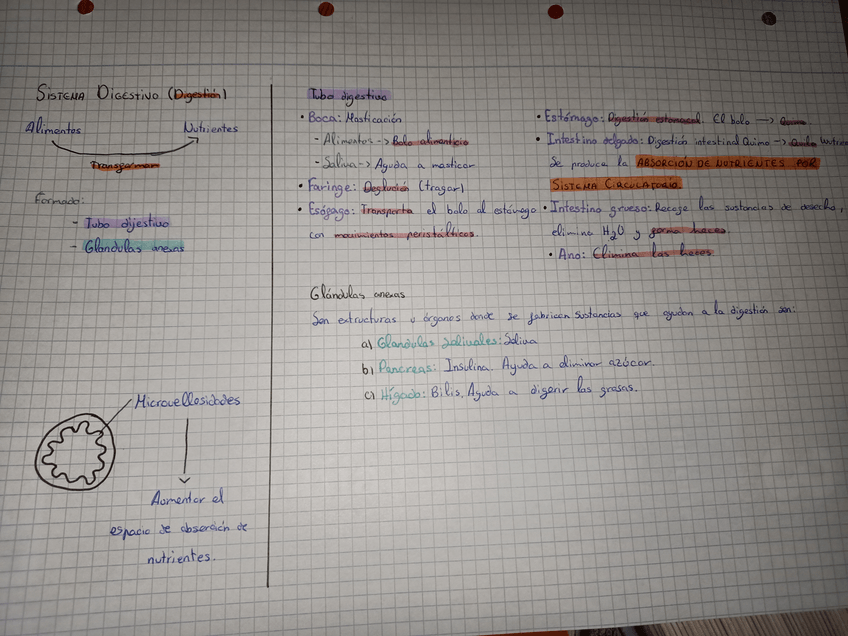 SISTEMA DIGESTIVO (Digestión)
Alimentos
Nutrientes
Transforman
Formado:
- Tubo digestivo
- Glandulas anexas
Microvellosidades
Aumentar el
espacio de absorción de
nutrientes.
Tubo digestivo
• Boca: Masticación
- Alimentos -> Bolo alimenticio
- Saliva -> Ayuda a masticar
• Faringe: Deglución (tragar)
• Esófago: Transporta el bolo al estómago
con movimientos peristálticos.
• Estómago: Digestión estomacal. El bolo -> Quimo
• Intestino delgado: Digestión intestinal Quimo -> Quilo
Se produce la ABSORCIÓN DE NUTRIENTES POR
SISTEMA CIRCULATORIO.
• Intestino grueso: Recoge las sustancias de desecho,
elimina H2O y forma heces.
• Ano: Elimina las heces
Glándulas anexas
Son estructuras u órganos donde se fabrican sustancias que ayudan a la digestión son:
a) Glandulas Salivales: Saliva
b) Pancreas: Insulina. Ayuda a eliminar azúcar.
c) Hígado: Bilis, Ayuda a digerir las grasas.